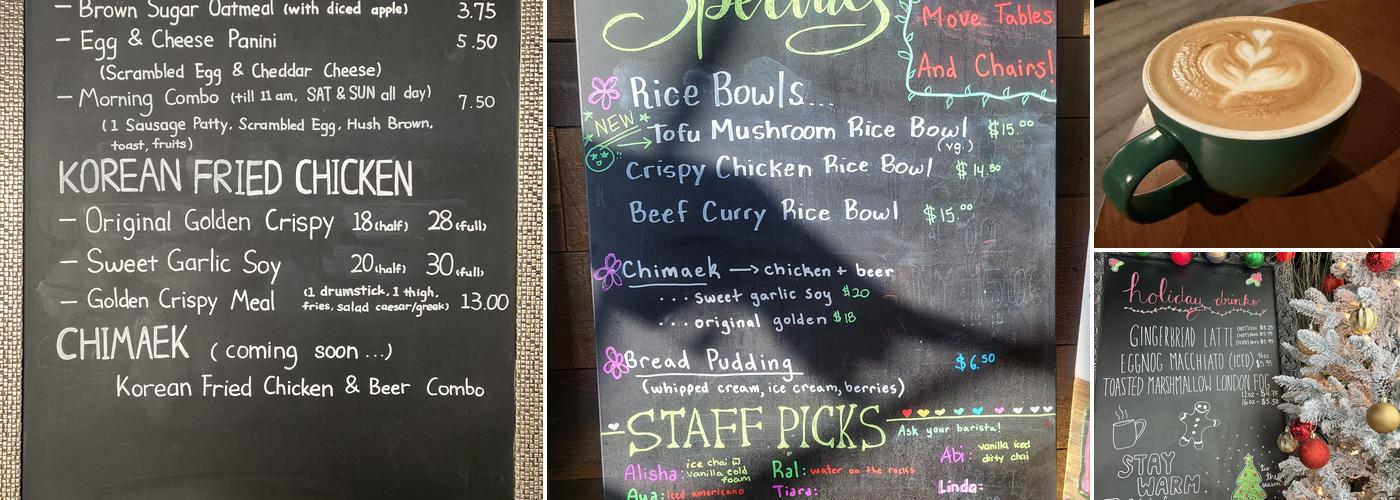 – Brown Sugar Oatmeal (with diced apple) 3.75
– Egg & Cheese Panini 5.50
(Scrambled Egg & Cheddar Cheese)
– Morning Combo (till 11 am, SAT & SUN all day) 7.50
(1 Sausage Patty, Scrambled Egg, Hush Brown,
toast, fruits)
KOREAN FRIED CHICKEN
– Original Golden Crispy 18 (half) 28 (full)
– Sweet Garlic Soy 20 (half) 30 (full)
– Golden Crispy Meal (1 drumstick, 1 thigh,
fries, salad caesar/greek) 13.00
CHIMAEK (coming soon...)
Korean Fried Chicken & Beer Combo
Specials
Move Tables
And Chairs!
Rice Bowls...
NEW
Tofu Mushroom Rice Bowl $15.00
(vg.)
Crispy Chicken Rice Bowl $14.50
Beef Curry Rice Bowl $15.00
Chimaek → chicken + beer
... sweet garlic soy $20
... original golden $18
Bread Pudding $6.50
(whipped cream, ice cream, berries)
STAFF PICKS
Ask your barista!
Alisha: ice chai w vanilla cold foam
Ral: water on the rocks
Abi: vanilla iced dirty chai
Aya: iced americano
Tiara:
Linda:
holiday drinks
GINGERBREAD LATTE
EGGNOG MACCHIATO (ICED) 16oz $5.95
TOASTED MARSHMALLOW LONDON FOG
12oz - $4.75
16oz - $5.50
STAY
WARM
'tis
the
season